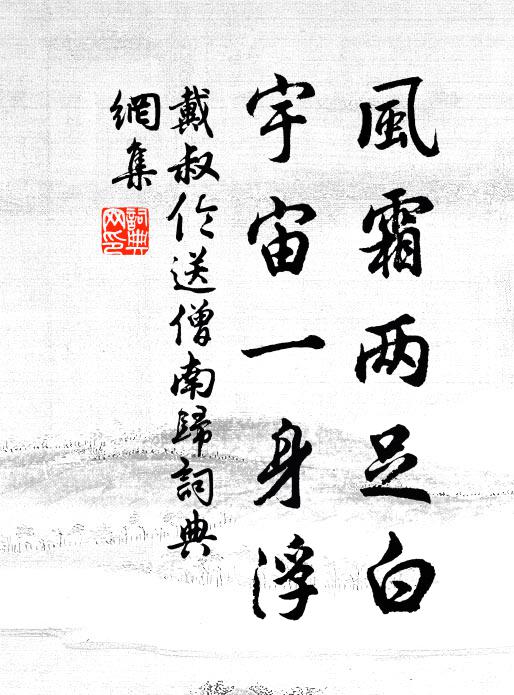 風霜两足白
宇宙一身浮
戴叔伦送僧南歸詞典
網集
詞典
网印